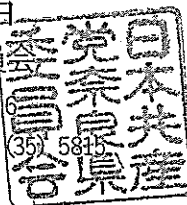 日本共産
党奈良県
委員会
(35) 5815